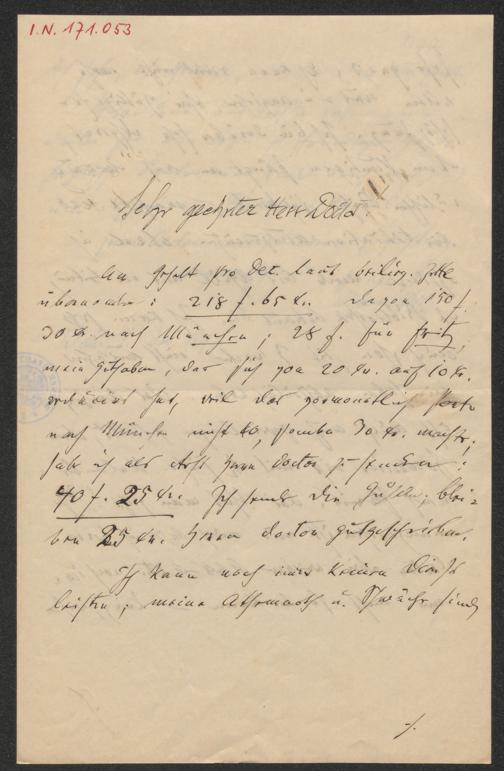 I.N. 171.053
Sehr geehrter Herr Doctor!
An Gehalt pro Dec. laut beilieg.
übernommen: 218 f. 65 kr. Davon 150 f.
30 kr. nach München; 28 f. für Fritz,
mein Guthaben, das sich von 20 kr. auf 10 kr.
reducirt hat, weil das vormonatliche Porto
nach München nicht 40, sondern 30 kr. machte;
habe ich als Rest Herrn Doctor zu senden:
40 f. 25 kr. Ich sende die Gulden; blei-
ben 25 kr. Herrn Doctor gutgeschrieben.
Ich kann noch immer keinen Dienst
leisten; meine Athemnoth u. Schwäche sind
./.